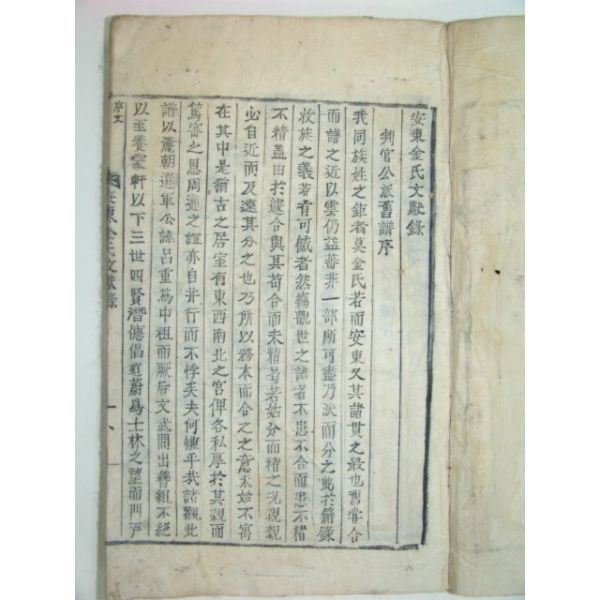 安東金氏文獻錄
判官公派舊譜序
我同族姓之鉅者莫金氏若而安東又其諸貫之最也舊嘗合
而譜之近以雲仍益蕃非一部所可盡乃派而分之此於籍錄
收族之義若有可憾者然竊觀世之譜者不患不合而患不精
不精盖由於蹔合與其苟合而未精曷若姑分而精之況親親
必自近而及遠其分之也乃所以務本而合之之意未始不寓
在其中是猶古之居室有東西南北之宮俾各私厚於其親而
篤審之恩周遍之誼亦自并行而不悖矣夫何慊乎哉諸觀此
譜以麗朝選軍公諱呂重爲中祖而厥后文武間出簪組不絕
以至養窩軒以下三世四賢潛德倡道蔚爲士林之望而門戶
序文
安東金氏文獻錄
一